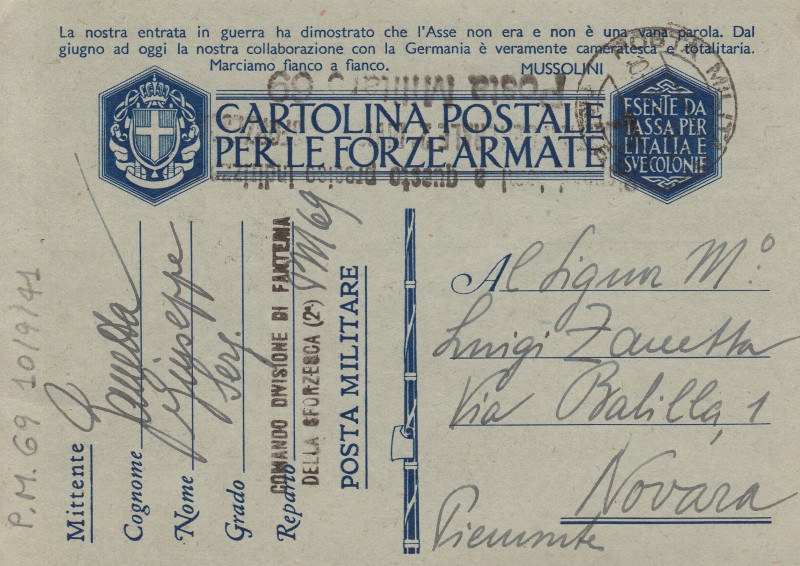 La nostra entrata in guerra ha dimostrato che l'Asse non era e non è una vana parola. Dal
giugno ad oggi la nostra collaborazione con la Germania è veramente cameratesca e totalitaria.
Marciamo fianco a fianco.
MUSSOLINI
POSTA MILIT
Posta Militare 69
CARTOLINA POSTALE
PER LE FORZE ARMATE
a questo preciso indirizzo
ESENTE DA
TASSA PER
L'ITALIA E
SVE COLONIE
P.M. 69 10/9/41
Mittente
Cognome Zanetta
Nome Giuseppe
Grado Serg.
Reparto COMANDO DIVISIONE DI FANTERIA
DELLA SFORZESCA (2ª) PM 69
POSTA MILITARE
Al Signor M.º
Luigi Zanetta
Via Balilla, 1
Novara
Piemonte